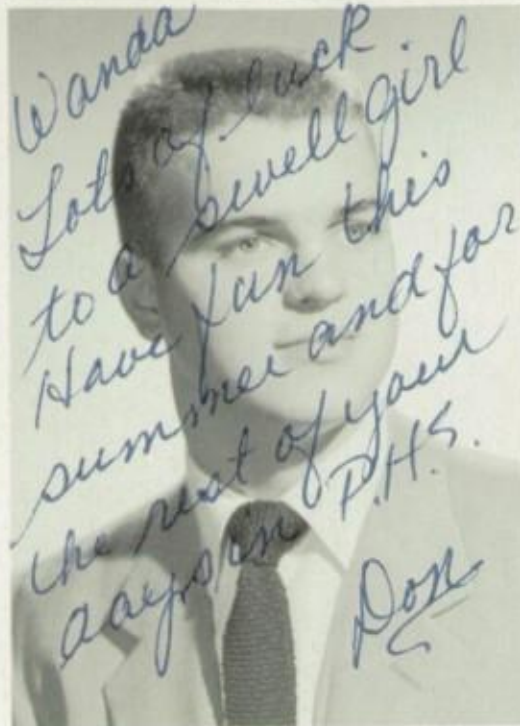 Wanda
Lots of luck
to a swell girl
Have fun this
summer and for
the rest of your
days in P.H.S.
Don